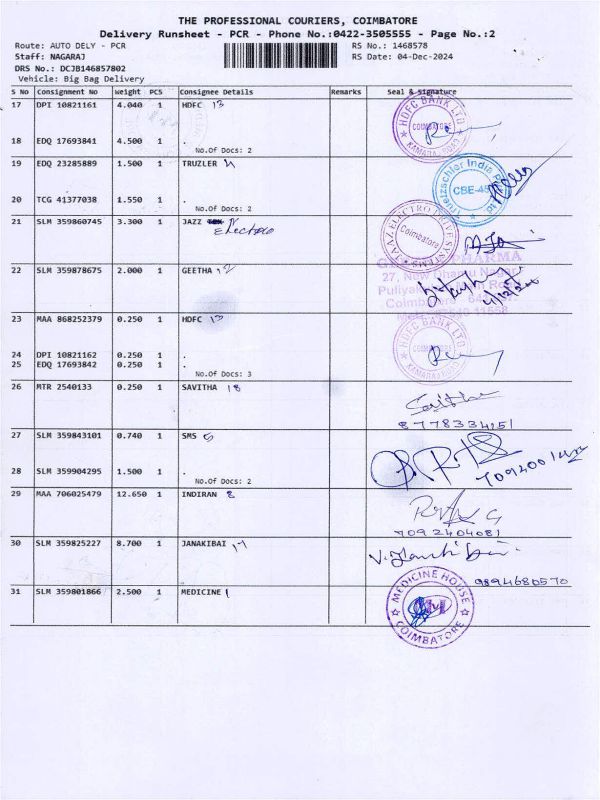 THE PROFESSIONAL COURIERS, COIMBATORE
Delivery Runsheet - PCR - Phone No.:0422-3505555 - Page No.:2
Route: AUTO DELY - PCR RS No.: 1468578
Staff: NAGARAJ RS Date: 04-Dec-2024
DRS No.: DCJB146857802
Vehicle: Big Bag Delivery
S No Consignment No Weight PCS Consignee Details Remarks Seal & Signature
17 DPI 10821161 4.040 1 HDFC 13
HDFC BANK LTD COIMBATORE
18 EDQ 17693841 4.500 1 .
No.Of Docs: 2
19 EDQ 23285889 1.500 1 TRUZLER
Truetzschler India CBE-45
20 TCG 41377038 1.550 1 .
No.Of Docs: 2
21 SLM 359860745 3.300 1 JAZZ
Electro
Coimbatore
PHARMA
22 SLM 359878675 2.000 1 GEETHA 12
27, New Dhamu Nagar
Puliyak Road
Coimbatore
23 MAA 868252379 0.250 1 HDFC 13
HDFC BANK LTD COIMBATORE
24 DPI 10821162 0.250 1 .
25 EDQ 17693842 0.250 1 .
No.Of Docs: 3
26 MTR 2540133 0.250 1 SAVITHA 18
Savitha
8778334151
27 SLM 359843101 0.740 1 SMS
28 SLM 359904295 1.500 1 .
No.Of Docs: 2
29 MAA 706025479 12.650 1 INDIRAN 8
7092404081
30 SLM 359825227 8.700 1 JANAKIBAI 17
9894680570
31 SLM 359801866 2.500 1 MEDICINE 1
MEDICINE HOUSE COIMBATORE